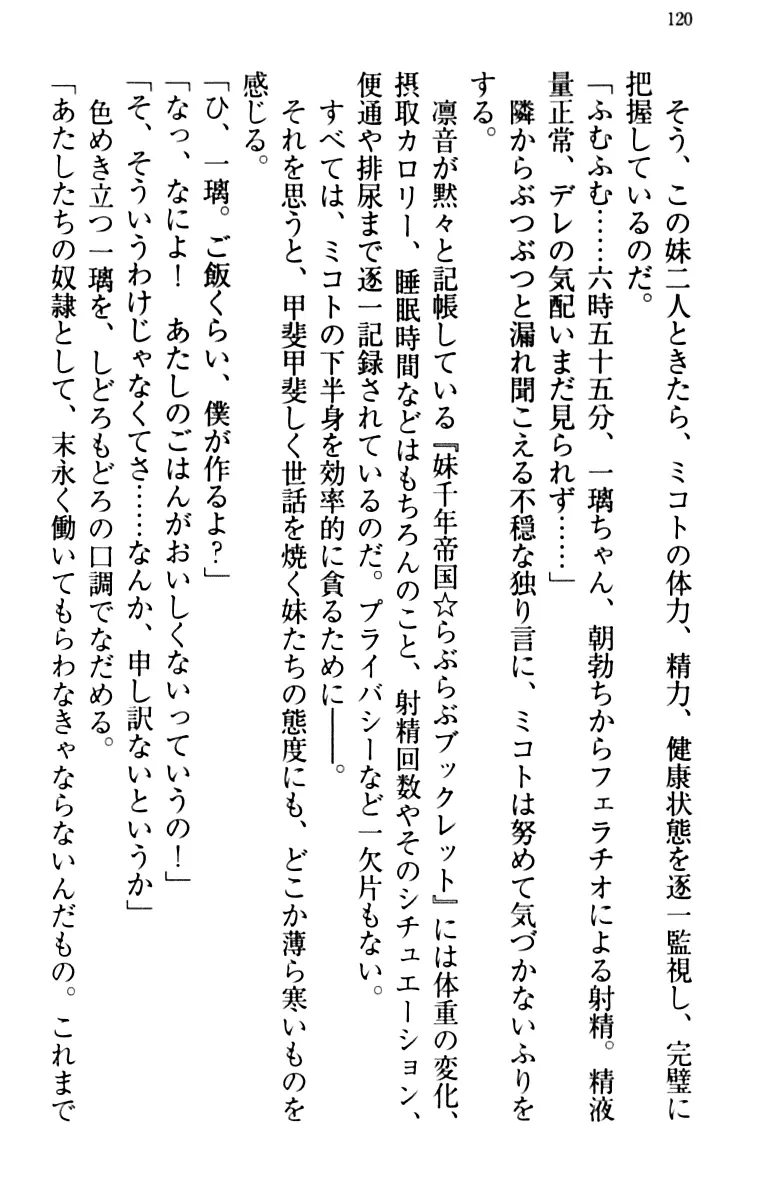 120
そう、この妹二人ときたら、ミコトの体力、精力、健康状態を逐一監視し、完璧に
把握しているのだ。
「ふむふむ……六時五十五分、一璃ちゃん、朝勃ちからフェラチオによる射精。精液
量正常、デレの気配いまだ見られず……」
隣からぶつぶつと漏れ聞こえる不穏な独り言に、ミコトは努めて気づかないふりを
する。
凛音が黙々と記帳している『妹千年帝国☆らぶらぶブックレット』には体重の変化、
摂取カロリー、睡眠時間などはもちろんのこと、射精回数やそのシチュエーション、
便通や排尿まで逐一記録されているのだ。プライバシーなど一欠片もない。
すべては、ミコトの下半身を効率的に貪るために――。
それを思うと、甲斐甲斐しく世話を焼く妹たちの態度にも、どこか薄ら寒いものを
感じる。
「ひ、一璃。ご飯くらい、僕が作るよ？」
「なっ、なによ！　あたしのごはんがおいしくないっていうの！」
「そ、そういうわけじゃなくてさ……なんか、申し訳ないというか」
色めき立つ一璃を、しどろもどろの口調でなだめる。
「あたしたちの奴隷として、末永く働いてもらわなきゃならないんだもの。これまで